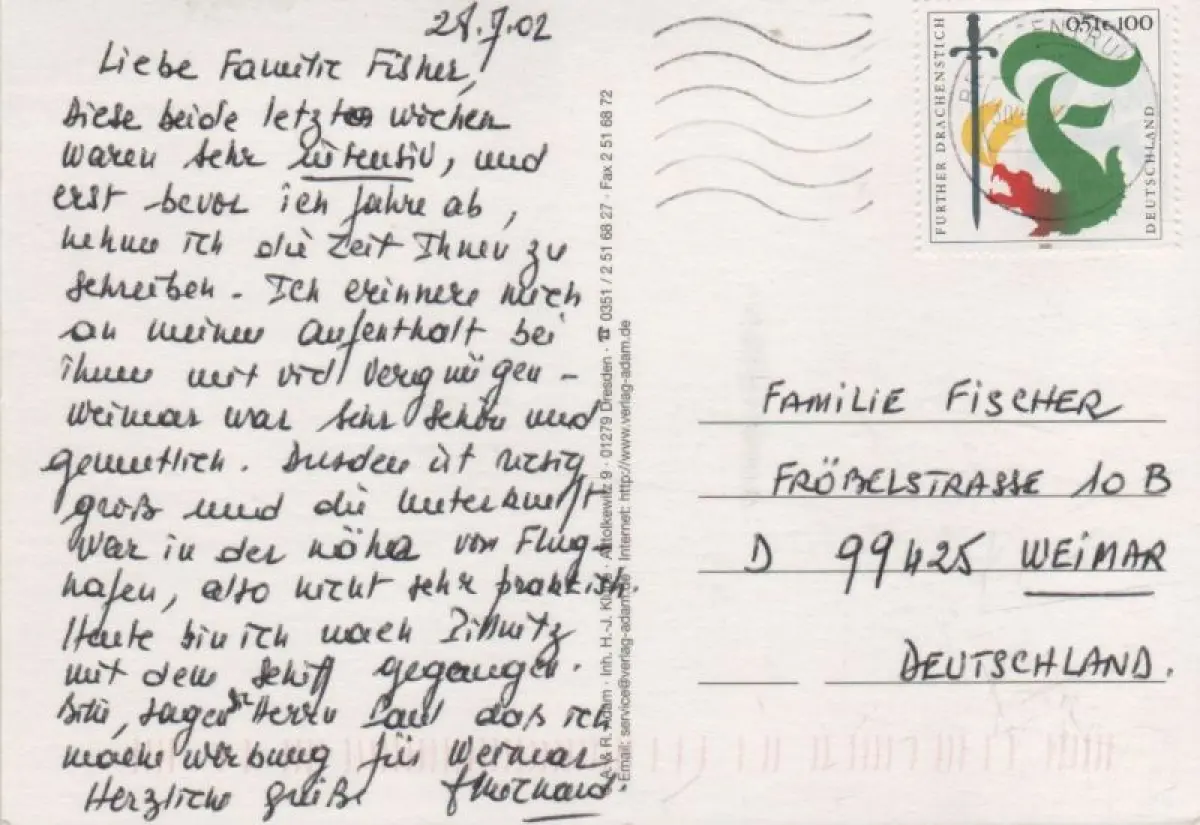 28.7.02
Liebe Familie Fisher,
Diese beide letzten wochen
waren sehr intensiv, und
erst bevor ich fahre ab,
nehme ich die Zeit Ihnen zu
schreiben. Ich erinnere mich
an meinen aufenthalt bei
ihnen mit viel Vergnügen -
Weimar war sehr schön und
gemutlich. Dresden ist riesig
groß und die Unterkunft
war in der nähe vom Flug-
hafen, also nicht sehr praktisch.
Heute bin ich nach Pillnitz
mit dem Schiff gegangen.
Bitte, sagen Sie Herrn Paul daß ich
mache werbung für Weimar
Herzliche grüße
A. & R. Adam · Inh. H.-J. · 9 · 01279 Dresden · ☎ 0351 / 2 51 68 27 · Fax 2 51 68 72
Email: service@verlag-adam.de · Internet: http://www.verlag-adam.de
FURTHER DRACHENSTICH
0,51€ 100
DEUTSCHLAND
FAMILIE FISCHER
FRÖBELSTRASSE 10 B
D 99425 WEIMAR
DEUTSCHLAND.